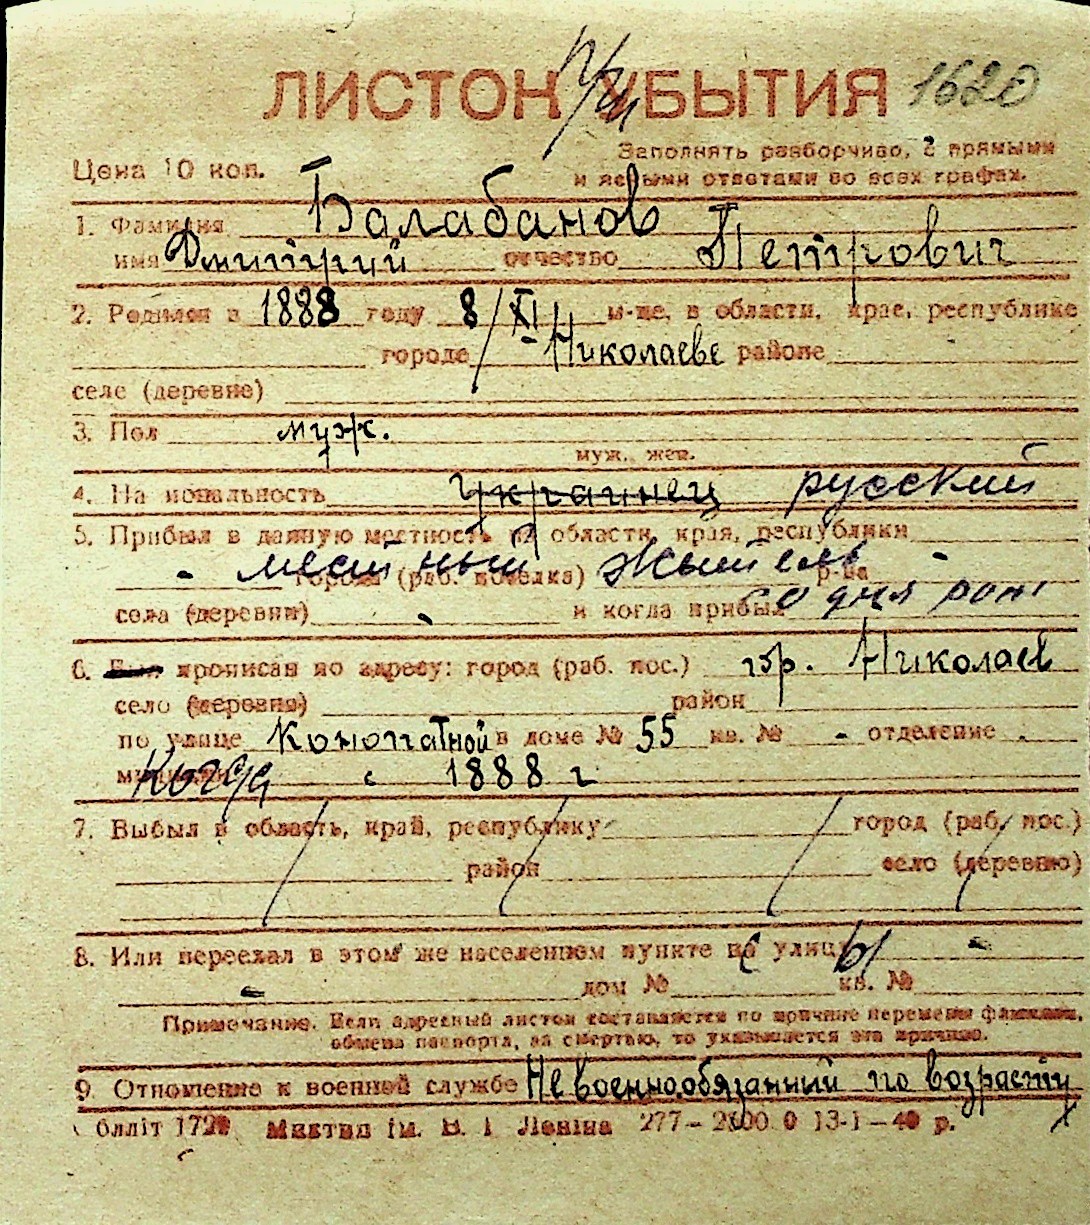 ЛИСТОК УБЫТИЯ 1620
Цена 10 коп.
Заполнять разборчиво, с прямыми
и ясными ответами во всех графах.
1. Фамилия Балабанов
имя Дмитрий отчество Петрович
2. Родился в 1888 году 8/XI м-це, в области, крае, республике
городе Николаеве районе
селе (деревне)
3. Пол муж.
муж., жен.
4. Национальность украинец русский
5. Прибыл в данную местность из области, края, республики
местный житель
города (раб. поселка) р-на
села (деревни) и когда прибыл со дня рож
6. Был прописан по адресу: город (раб. пос.) гор. Николаев
село (деревня) район
по улице Конопатной в доме № 55 кв. № - отделение
милиции когда с 1888 г
7. Выбыл в область, край, республику город (раб. пос.)
район село (деревню)
8. Или переехал в этом же населенном пункте с улицы -
- дом № кв. №
Примечание. Если адресный листок составляется по причине перемены фамилии,
обмена паспорта, за смертью, то указывается эта причина.
9. Отношение к военной службе Не военнообязанный по возрасту
ім. В. І Леніна 277- 0 13-1-40 р.